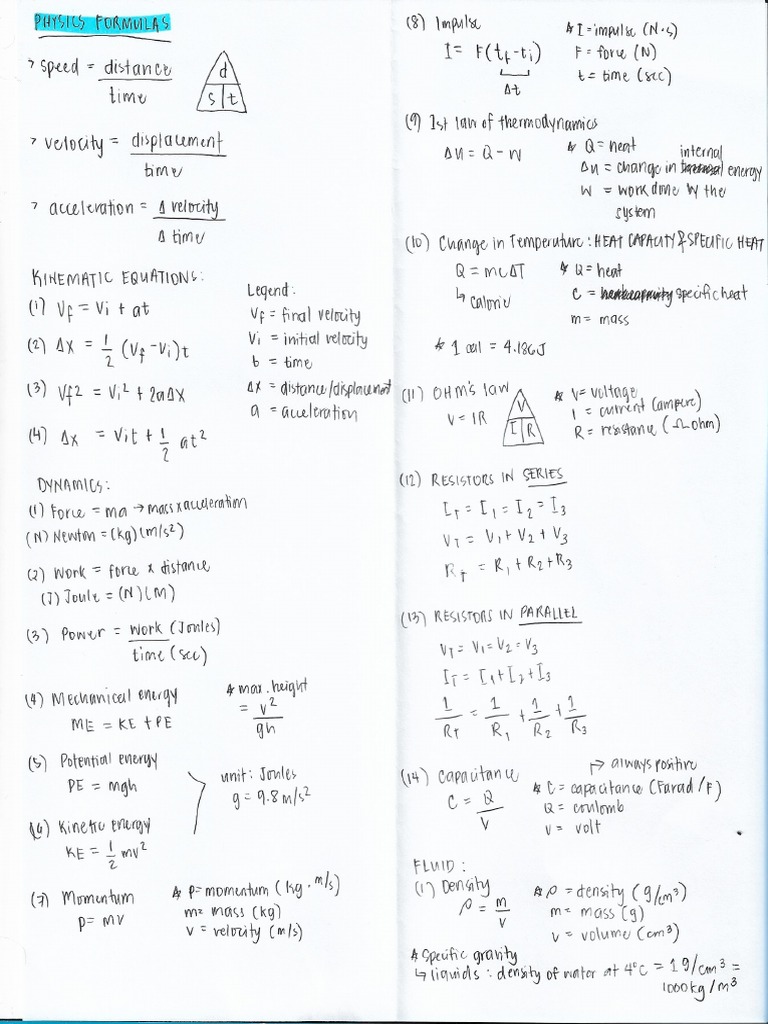 PHYSICS FORMULAS
> speed = distance / time
d
s t
> velocity = displacement / time
> acceleration = Δ velocity / Δ time
KINEMATIC EQUATIONS:
(1) Vf = Vi + at
(2) Δx = 1/2 (Vf - Vi)t
(3) Vf2 = Vi² + 2aΔx
(4) Δx = Vit + 1/2 at²
Legend:
Vf = final velocity
Vi = initial velocity
t = time
Δx = distance/displacement
a = acceleration
DYNAMICS:
(1) Force = ma → mass x acceleration
(N) Newton = (kg)(m/s²)
(2) Work = force x distance
(J) Joule = (N)(M)
(3) Power = work (Joules) / time (sec)
(4) Mechanical energy
ME = KE + PE
* max. height
= v² / gh
(5) Potential energy
PE = mgh
(6) Kinetic energy
KE = 1/2 mv²
unit: Joules
g = 9.8 m/s²
(7) Momentum
p = mv
* p = momentum (kg · m/s)
m = mass (kg)
v = velocity (m/s)
(8) Impulse
I = F(tf - ti)
Δt
* I = impulse (N·s)
F = force (N)
t = time (sec)
(9) 1st law of thermodynamics
Δu = Q - W
* Q = heat
internal
Δu = change in energy
W = work done by the
system
(10) Change in Temperature: HEAT CAPACITY & SPECIFIC HEAT
Q = mcΔT
↳ calorie
* Q = heat
c = heat capacity specific heat
m = mass
* 1 cal = 4.186J
(11) OHM'S law
V = IR
V
I R
* V = voltage
I = current (ampere)
R = resistance (Ω ohm)
(12) RESISTORS IN SERIES
IT = I1 = I2 = I3
VT = V1 + V2 + V3
RT = R1 + R2 + R3
(13) RESISTORS IN PARALLEL
VT = V1 = V2 = V3
IT = I1 + I2 + I3
1/RT = 1/R1 + 1/R2 + 1/R3
(14) Capacitance
C = Q / V
↱ always positive
* C = capacitance (Farad / F)
Q = coulomb
V = volt
FLUID:
(1) Density
ρ = m / v
* ρ = density (g/cm³)
m = mass (g)
v = volume (cm³)
* Specific gravity
↳ liquids: density of water at 4°C = 1g/cm³ =
1000kg/m³